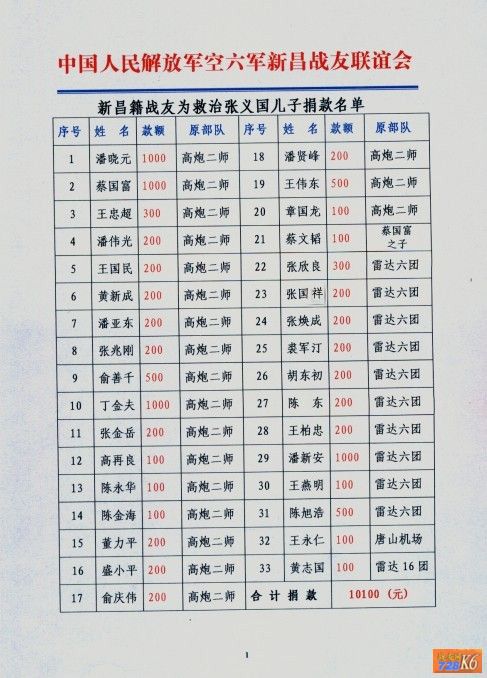 中国人民解放军空六军新昌战友联谊会
新昌籍战友为救治张义国儿子捐款名单
序号 姓 名 款额 原部队 序号 姓 名 款额 原部队
1 潘晓元 1000 高炮二师 18 潘贤峰 200 高炮二师
2 蔡国富 1000 高炮二师 19 王伟东 500 高炮二师
3 王忠超 300 高炮二师 20 章国龙 100 高炮二师
4 潘伟光 200 高炮二师 21 蔡文韬 100 蔡国富之子
5 王国民 200 高炮二师 22 张欣良 300 雷达六团
6 黄新成 200 高炮二师 23 张国祥 200 雷达六团
7 潘亚东 200 高炮二师 24 张焕成 200 雷达六团
8 张兆刚 200 高炮二师 25 裘军汀 200 雷达六团
9 俞善千 500 高炮二师 26 胡东初 200 雷达六团
10 丁金夫 1000 高炮二师 27 陈 东 200 雷达六团
11 张金岳 200 高炮二师 28 王柏忠 200 雷达六团
12 高再良 100 高炮二师 29 潘新安 1000 雷达六团
13 陈永华 100 高炮二师 30 袁燕明 100 雷达六团
14 陈金海 100 高炮二师 31 陈旭浩 500 雷达六团
15 董力平 200 高炮二师 32 王永仁 100 唐山机场
16 盛小平 200 高炮二师 33 黄志国 100 雷达16团
17 俞庆伟 200 高炮二师 合计捐款 10100（元）
1
728 K6